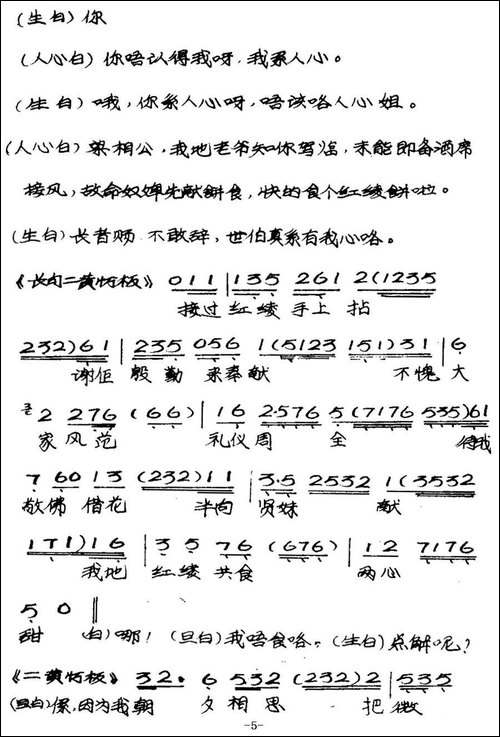 (生白)你
(人心白)你唔认得我呀,我系人心。
(生白)哦,你系人心呀,唔该咯人心姐。
(人心白)梁相公,我地老爷知你驾临,未能即备酒席
接风,故命奴婢先献饼食,快的食个红绫饼啦。
(生白)长者赐 不敢辞,世伯真系有我心咯。
《长句二黄慢板》 0 1 1 | 1 3 5 2 6 1 2 (1 2 3 5
接过 红绫 手上 拈
2 3 2) 6 1 | 2 3 5 0 5 6 1 (5 1 2 3 1 5 1) 3 1 | 6
谢佢 殷 勤 来奉献 不愧 大
2 2 7 6 (6 6) | 1 6 2·5 7 6 5 (7 1 7 6 5 3 5) 6 1
家 风 范 礼仪 周 全 待我
7 6 0 1 3 (2 3 2) 1 1 | 3·5 2 5 3 2 1 (3 5 3 2
敬佛 借花 半向 贤妹 献
1 7 1) 1 6 | 3 5 7 6 (6 7 6) | 1 2 7 1 7 6
我地 红绫 共食 两心
5 0 ‖
甜 白)哪! (旦白)我唔食咯。 (生白)点解呢?
《二黄慢板》 3 2 · 6 5 3 2 (2 3 2) 2 | 5 3 5
(旦白)系,因为我朝 夕 相 思 把 微
-5-